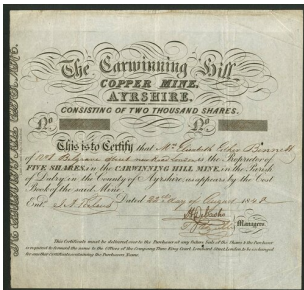 The Carwinning Hill
COPPER MINE,
AYRSHIRE.
CONSISTING OF TWO THOUSAND SHARES.
No No
This is to Certify that
of Belgrave Street the Proprietor of
FIVE SHARES, in the CARWINNING HILL MINE, in the Parish
of Dalry, in the County of Ayrshire, as appears by the Cost
Book of the said Mine.
Dated 22nd day of August 184
Managers
This Certificate must be delivered over to the Purchaser on any future Sale of the Shares & the Purchaser
is required to forward the same to the Offices of the Company Lombard Street London to be exchanged
for another Certificate containing the Purchasers Name.